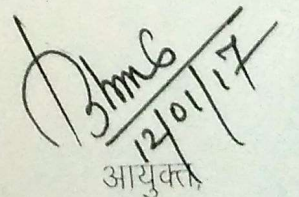 12/01/17
आयुक्त,